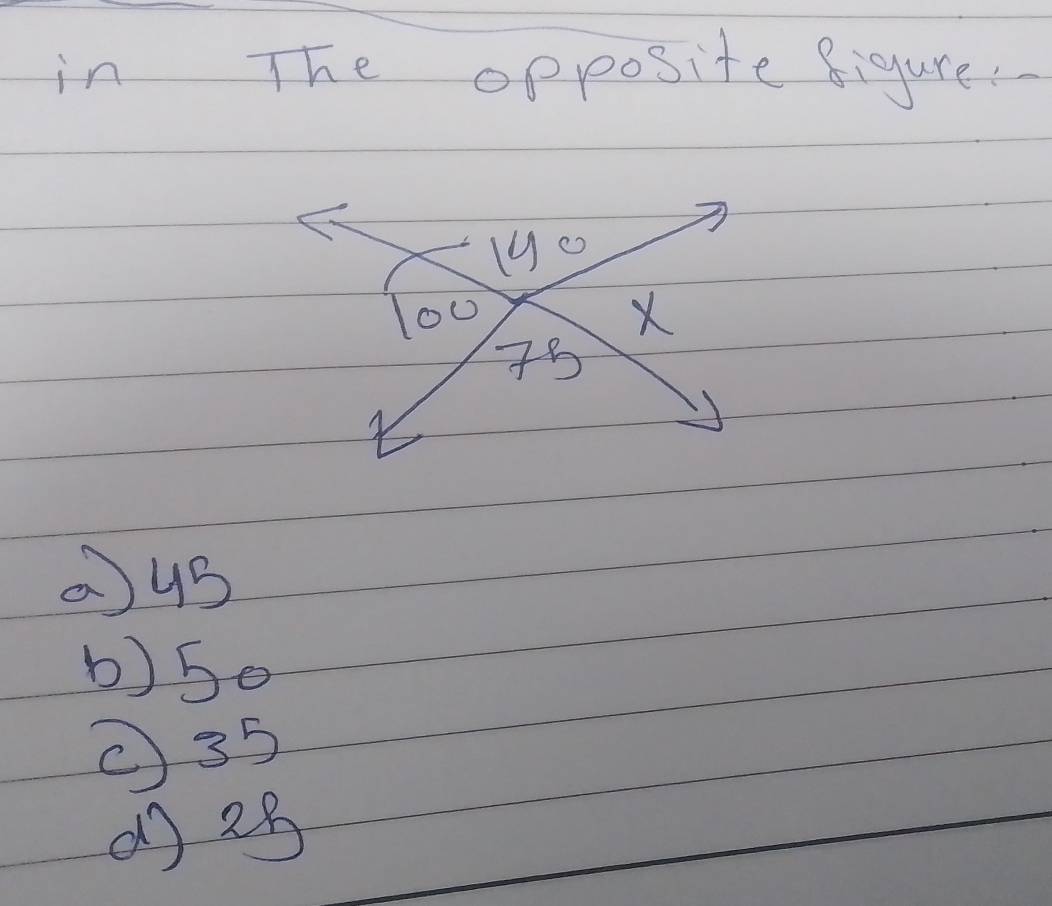 in The opposite figure:-
140
100 X
75
a) 45
b) 50
c) 35
d) 25